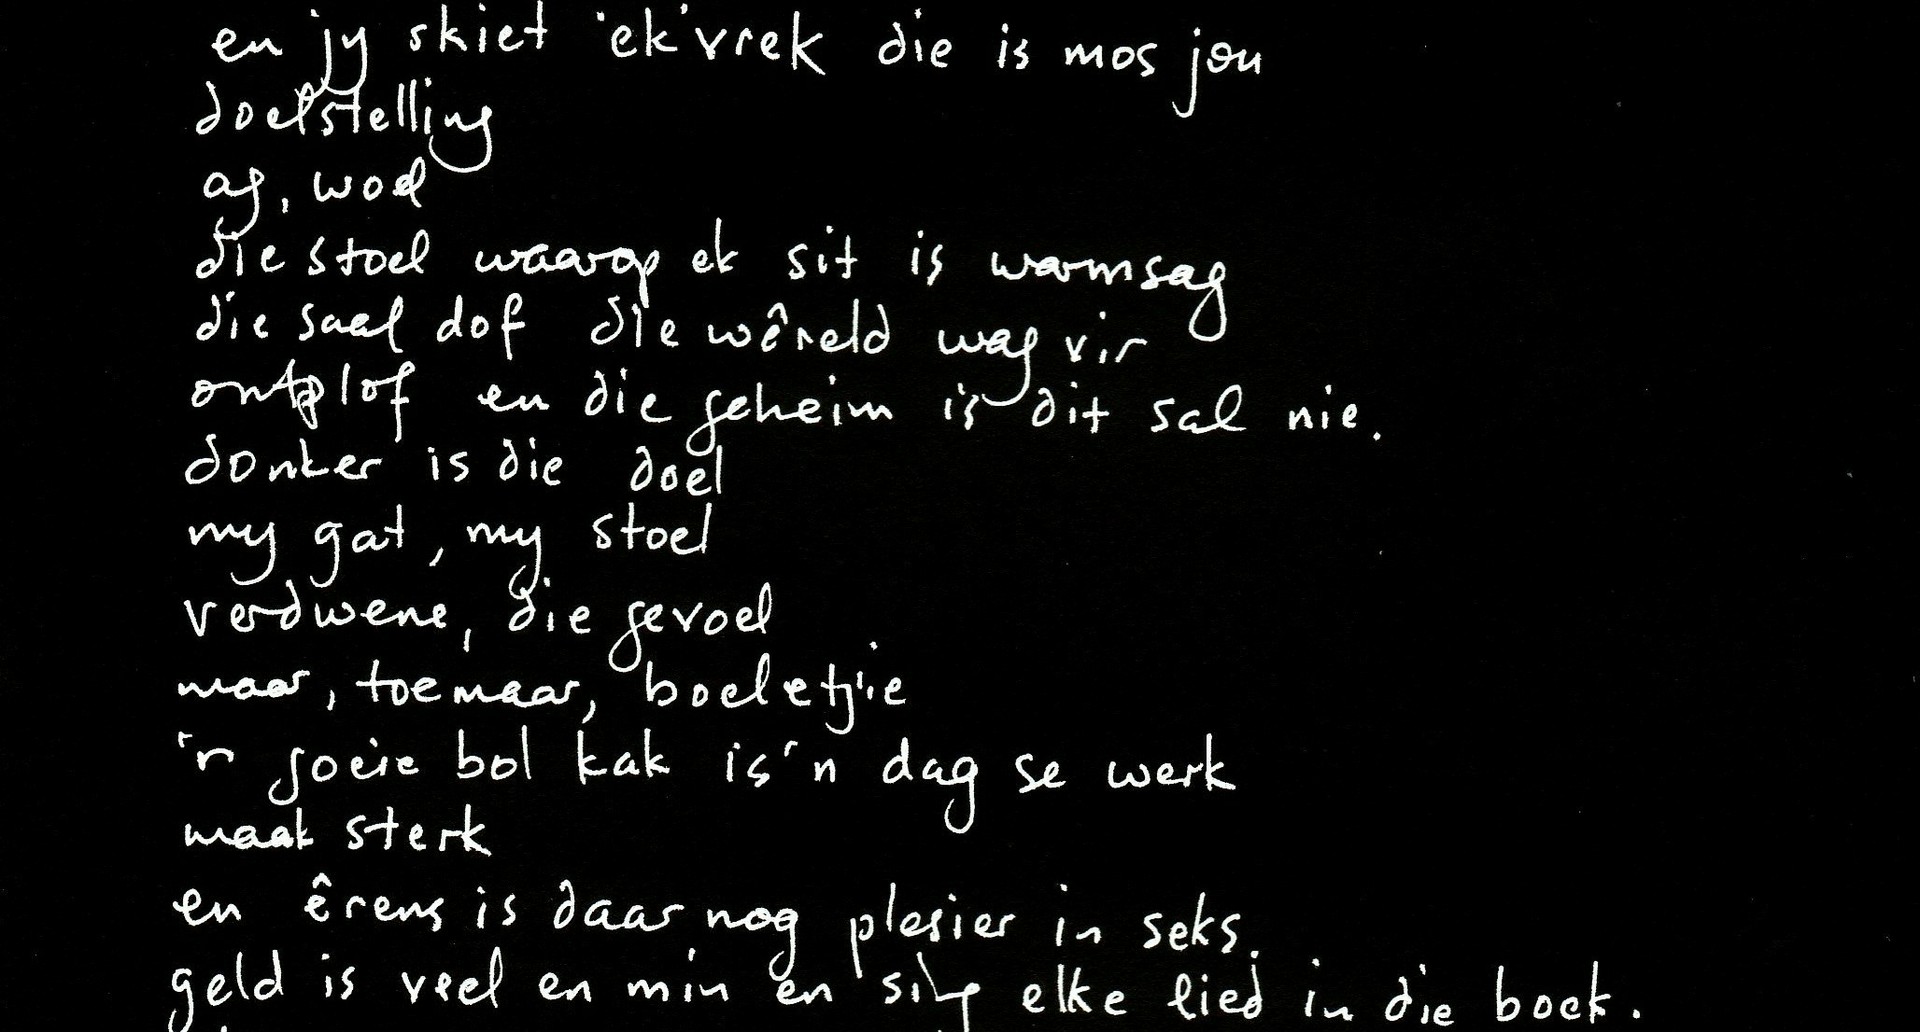 en jy skiet 'ek' vrek die is mos jou
doelstelling
ag, wod
die stoel waarop ek sit is warmsag
die saal dof die wêreld wag vir
ontplof en die geheim is dit sal nie.
donker is die doel
my gat, my stoel
verdwene, die gevoel
maar, toemaar, boeletjie
'n goeie bol kak is 'n dag se werk
maak sterk
en êrens is daar nog plesier in seks.
geld is veel en min en sing elke lied in die boek.